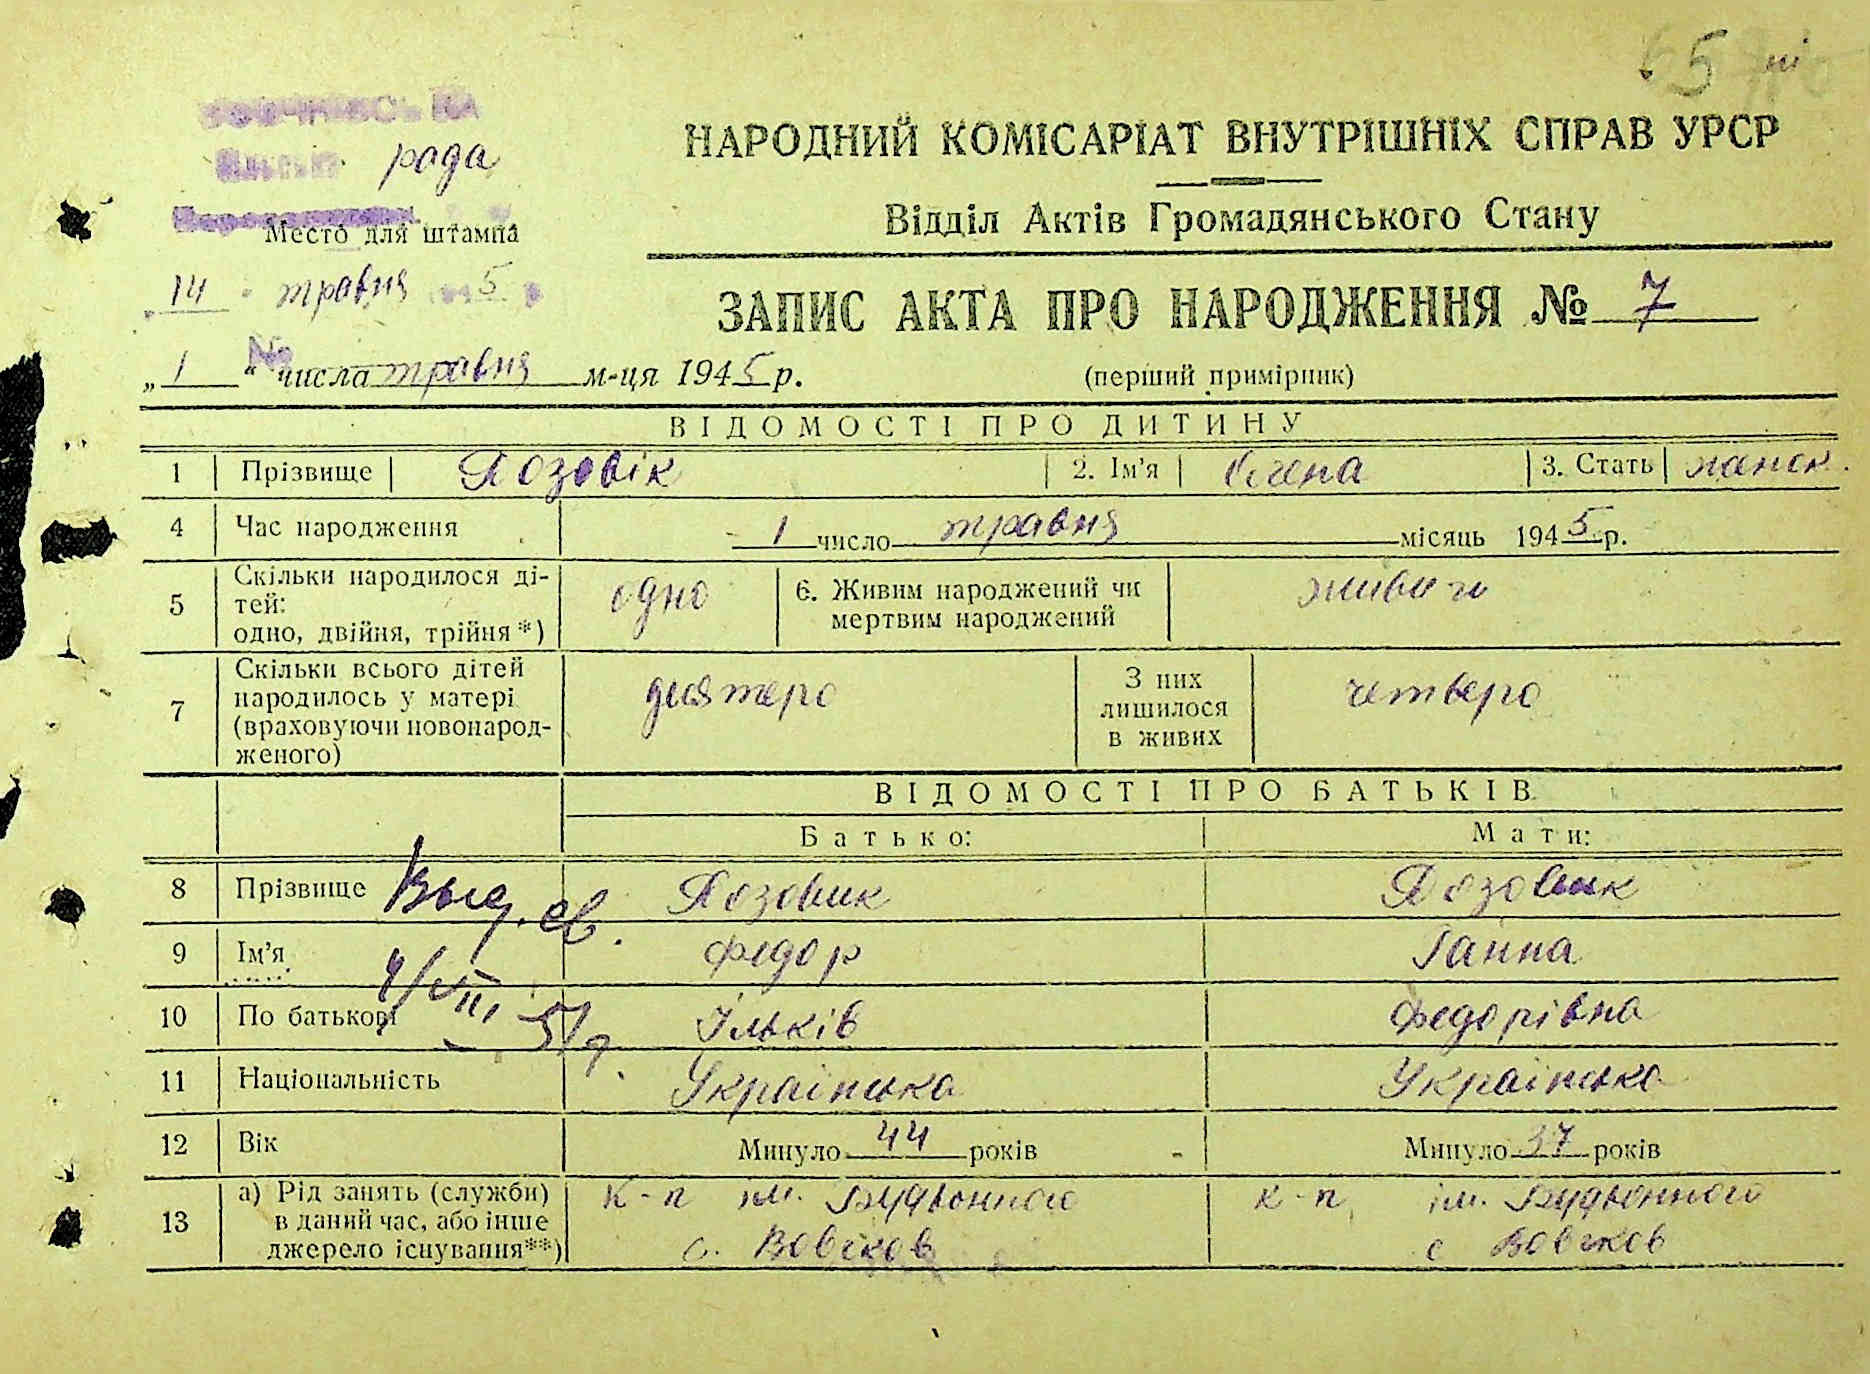 65
рада
Место для штампа
14 травня 5
НАРОДНИЙ КОМІСАРІАТ ВНУТРІШНІХ СПРАВ УРСР
Відділ Актів Громадянського Стану
ЗАПИС АКТА ПРО НАРОДЖЕННЯ № 7
„ 1 " числа травня м-ця 1945 р.
(перший примірник)
ВІДОМОСТІ ПРО ДИТИНУ
1 Прізвище Лозовік 2. Ім'я Олена 3. Стать
4 Час народження 1 число травня місяць 1945 р.
5 Скільки народилося ді-
тей:
одно, двійня, трійня*) одно 6. Живим народжений чи
мертвим народжений
7 Скільки всього дітей
народилось у матері
(враховуючи новонарод-
женого) З них
лишилося
в живих четверо
ВІДОМОСТІ ПРО БАТЬКІВ
Батько: Мати:
8 Прізвище Лозовик Лозовик
Выд. св.
9 Ім'я Федор Ганна
4/VIII 51 г.
10 По батькові Ільків Федорівна
11 Національність Українська Українська
12 Вік Минуло 44 років Минуло 37 років
13 а) Рід занять (служби)
в даний час, або інше
джерело існування**)
к-п ім. Будьонного к-п ім. Будьонного
с. Вовчков с Вовчков